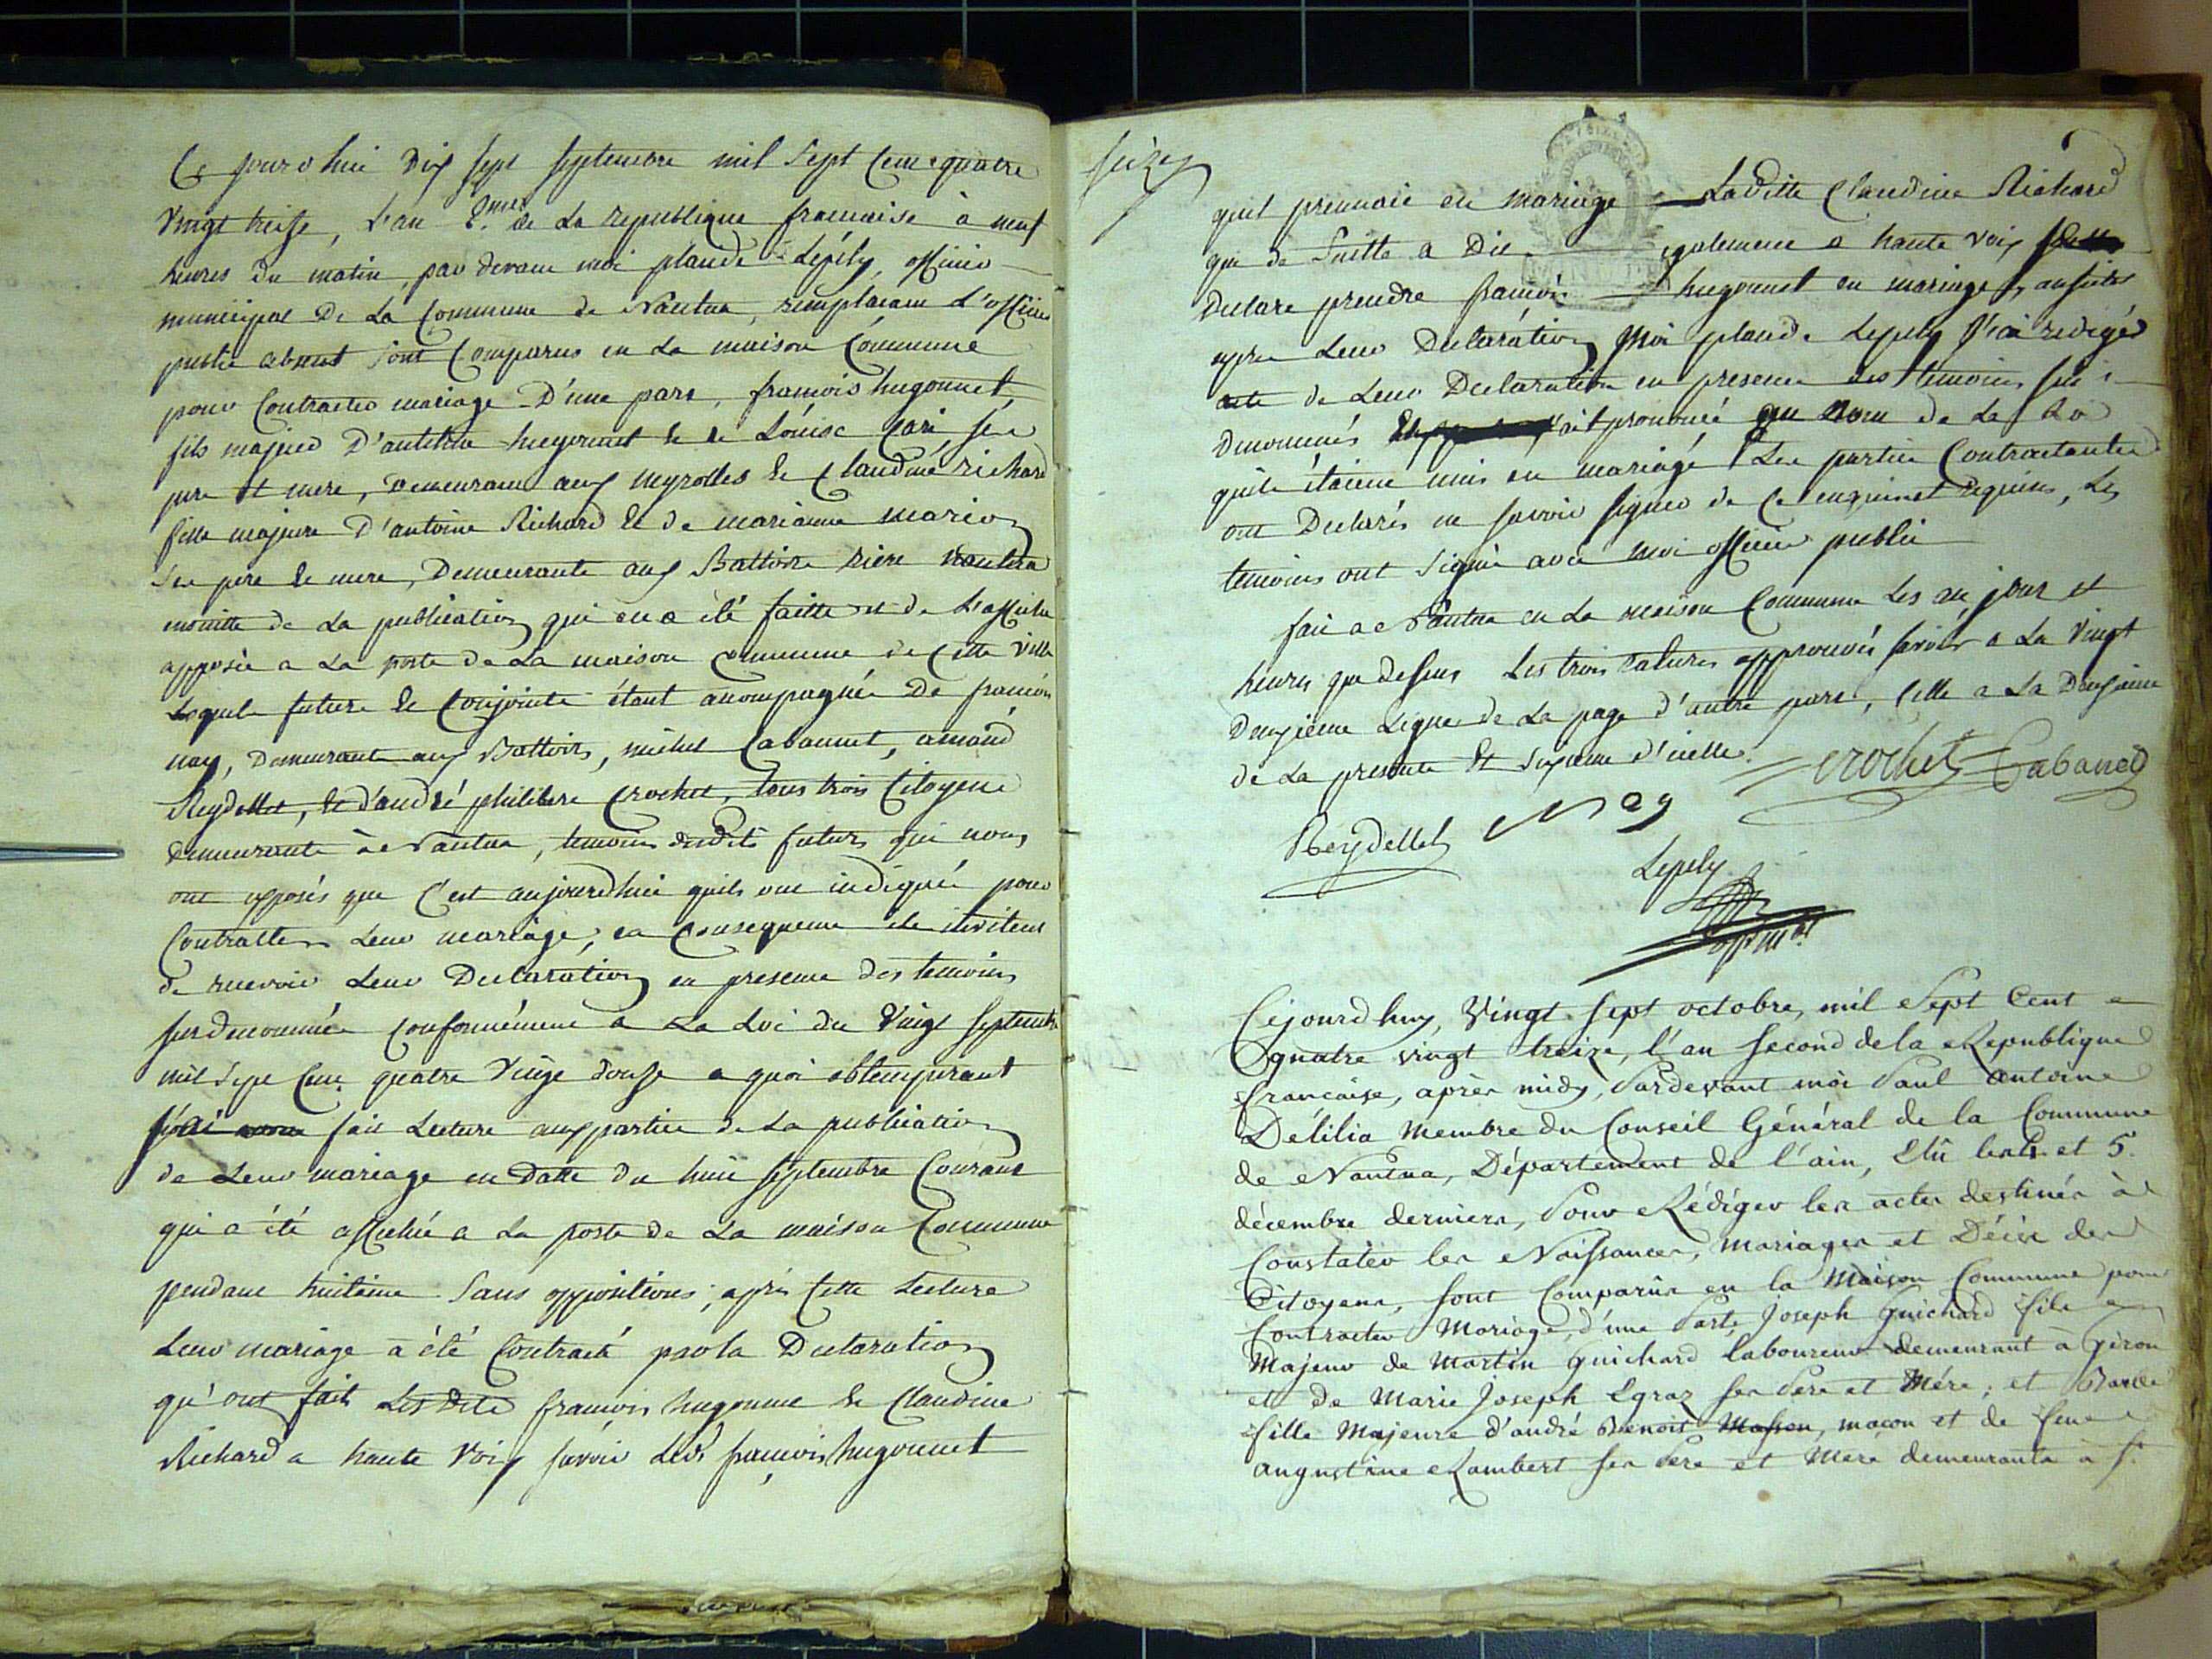 Ce jourd hui dix sept septembre mil sept cent quatre
vingt treise, L'an 2.me de La republique francaise à neuf
heures du matin, par devant moi plaude Lepély, officier
municipal De La Commune de Nantua, remplacant L'officier
public absent sont comparus en La maison Commune
pour Contracter mariage D'une part, francois hugonnet,
fils majeur D'anthelme hugonnet & de Louise ses
pere et mere, demeurant aux neyrolles & Claudine richard
fille majeure D'antoine Richard & de marianne marion
ses pere & mere, Demeurante aux Battoirs riere nantua
de La publication qui en a été faitte et de L'affiche
apposée a La porte de La maison commune de Cette ville
Lesquels futurs & Conjoints étant accompagnés De francois
nay, Demeurant aux Battoirs, michel Cabannet, amand
Reydellet, & d'andré philibert Crochet, tous trois Citoyens
demeurants à Nantua, temoins desdits futurs qui nous
ont exposés que C'est aujourdhui quils ont indiqués pour
Contracter Leur mariage, en Consequence ils invitent
de recevoir Leur Declaration en presence des temoins
susdenommés conformement a La Loi du Vingt septembre
mil sept Cent quatre Vingt douse a quoi obtemperant
j'ai fait Lecture aux parties de La publication
de Leur mariage en Datte du huit septembre Courant
qui a été affichée a La porte de La maison Commune
pendant huitaine sans oppositions; après Cette Lecture
Leur mariage a été Contracté par la Declaration
qu'ont fait Lesdits francois hugonnet & Claudine
Richard a haute voix savoir Ledt francois hugonnet
seize
quil prennoit en mariage Laditte Claudine Richard
que de suitte a Dit egalement a haute voix
Declare prendre francois hugonnet en mariage, aussitot
apres Leur Declaration Moi plaude Lepely J'ai redigé
acte de Leur Declaration en presence des temoins sus
denommés ai prononcé au nom de La Loi
quils étoient unis en mariage Les parties Contractantes
ont Declarés ne savoir signer de Ce enquis et requis, Les
temoins ont signé avec moi officier public
fait a Nantua en La maison Commune Les an, jour et
heures que dessus Les trois ratures approuvés savoir a La Vingt
deuxieme Ligne de La page d'autre part, Celle a La Deuxieme
de La presente Et sixieme d'icelle.
Crochet Cabanet
Reydellet Nay
Lepely
off. m.al
Cejourdhuy, Vingt sept octobre, mil Sept Cent
quatre vingt treize, l'an second de la Republique
francaise, après midy, Pardevant moi Paul antoine
Délilia Membre du Conseil Général de la Commune
de Nantua, Département de l'ain, Elû les et 5
décembre derniers, Pour Rédiger les actes destinés à
Constater les Naissances, mariages et Décés des
Citoyens, sont Comparûs en la Maison Commune pour
Contracter Mariage, d'une Part, Joseph Guichard fils
Majeur de Martin Guichard laboureur demeurant à Giron
et de Marie Joseph Egraz ses Pere et Mère; et
fille Majeure d'andré Benoit Masson, maçon et de feue
augustine Lambert ses Pere et Mere demeurants à St